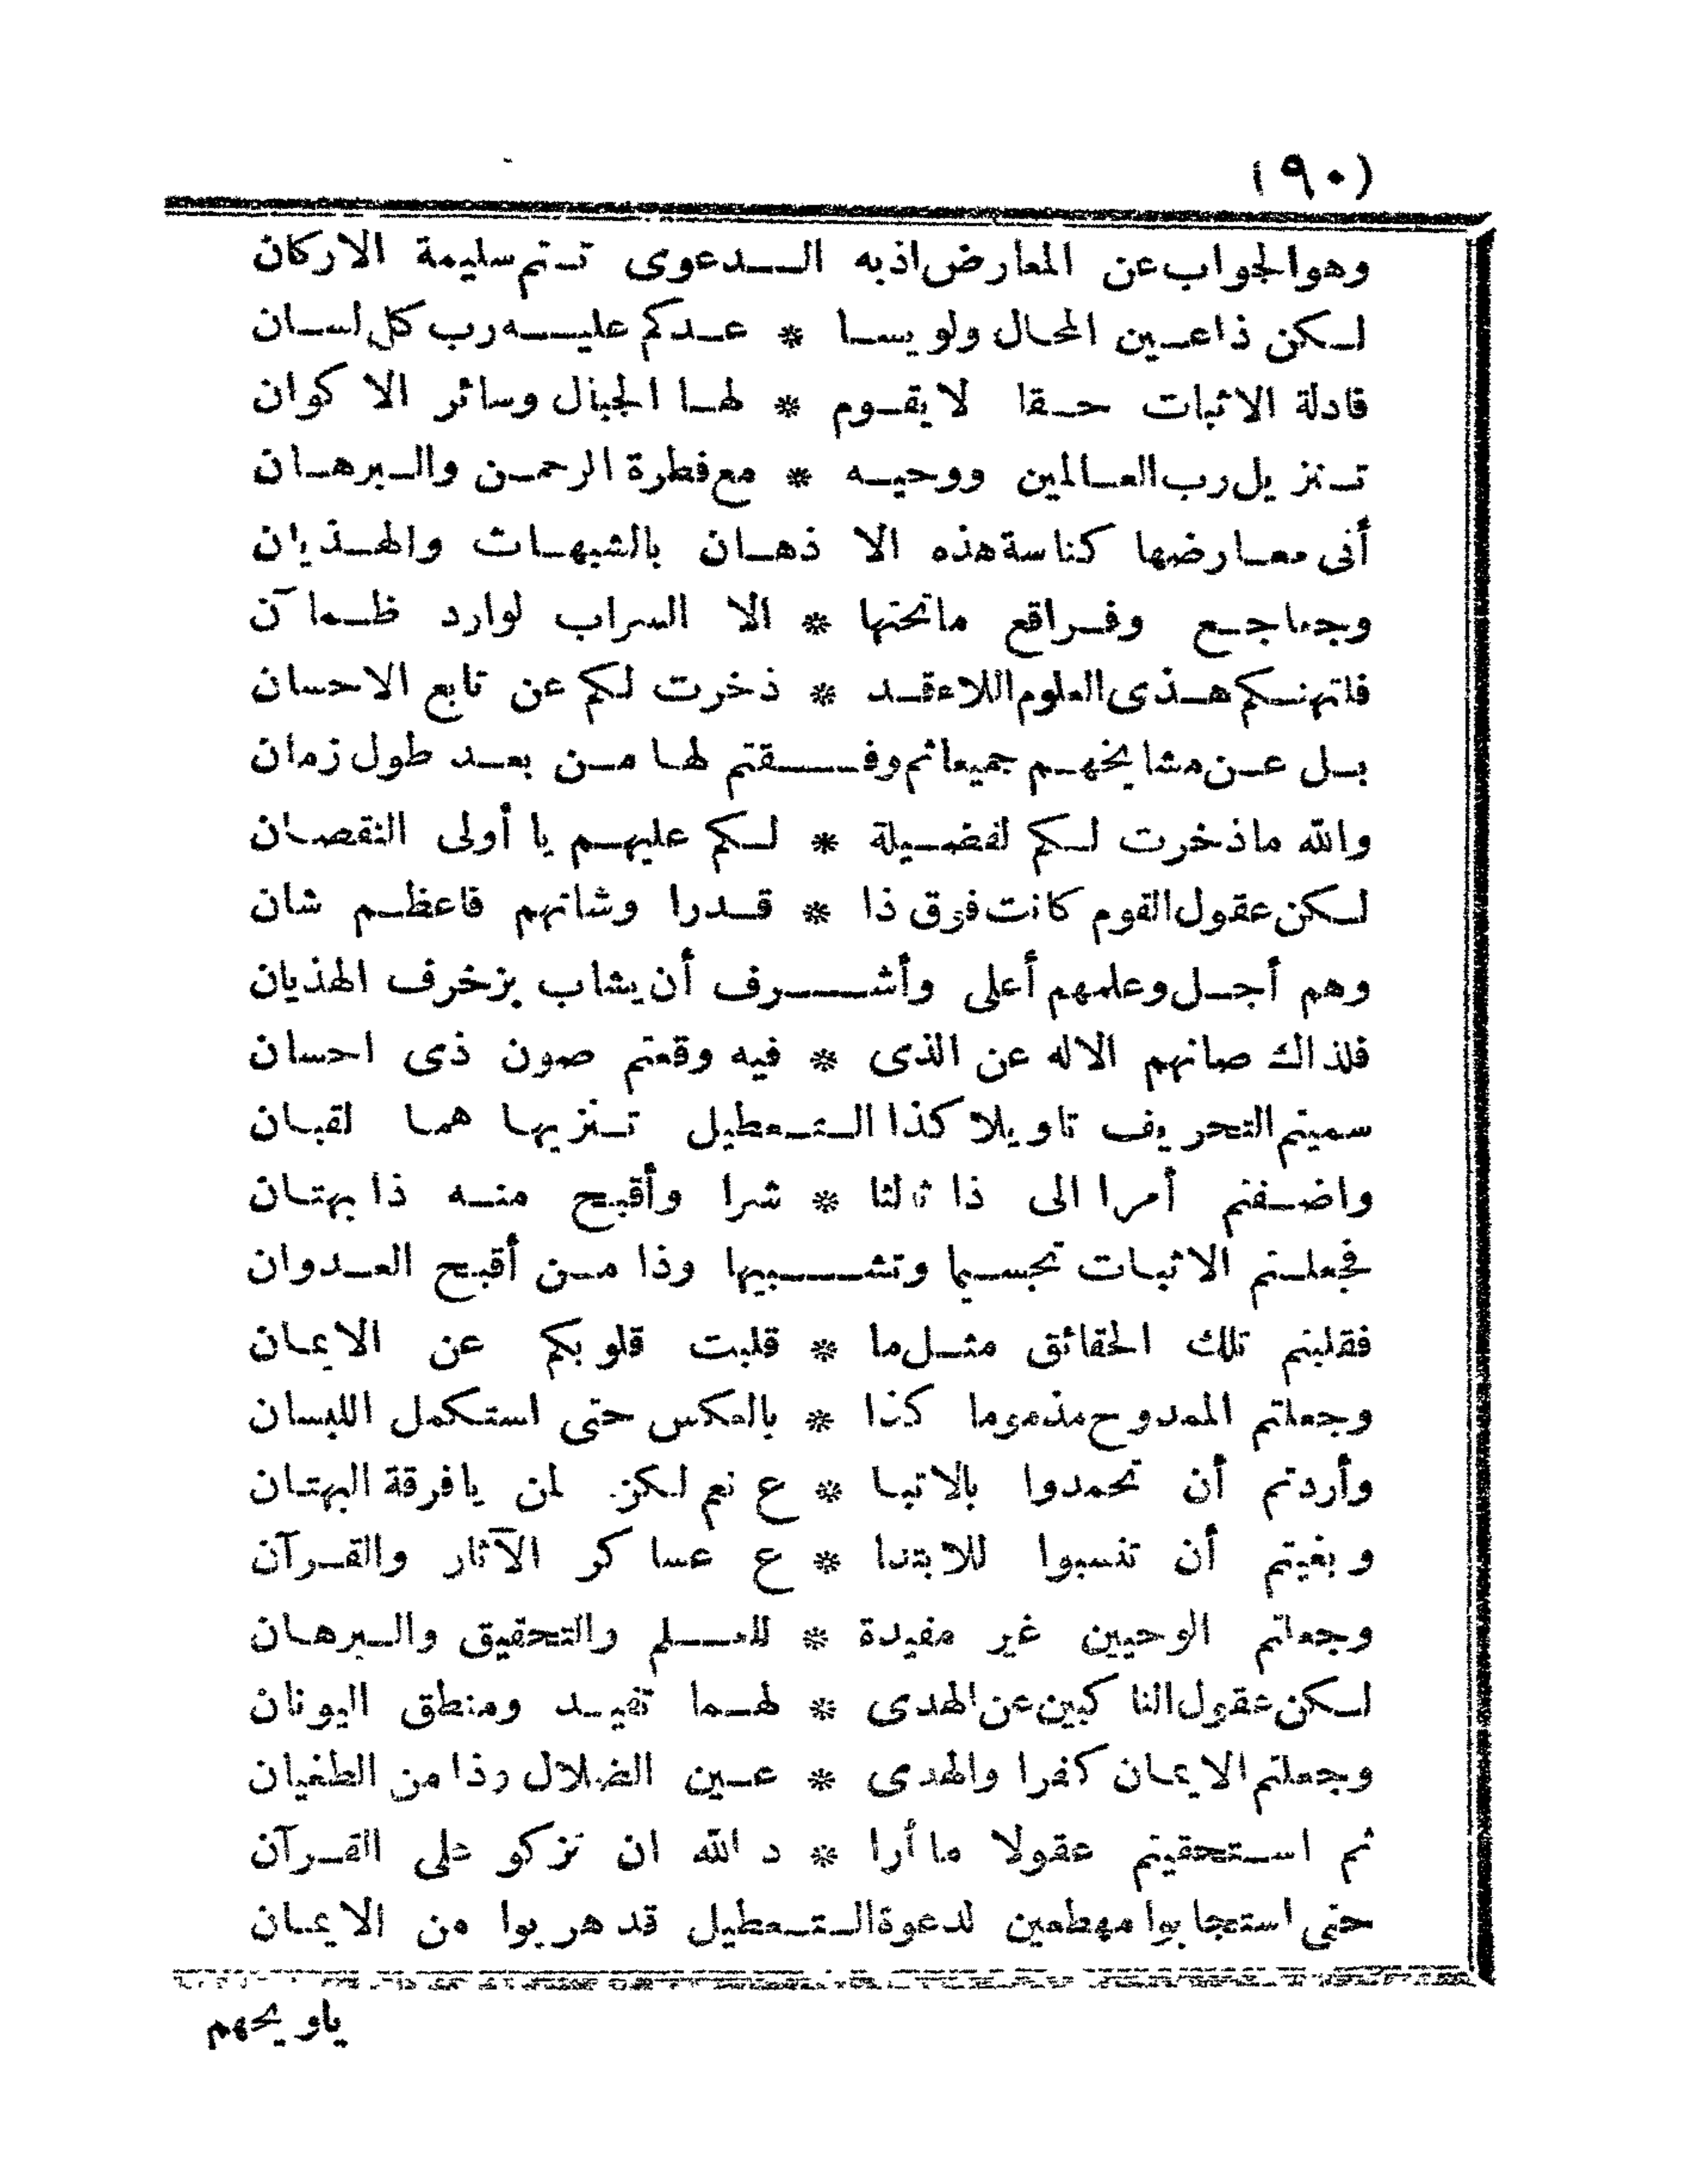 (٩٠)
وهو الجواب عن المعارض اذ به الدعوى تتم سليمة الاركان
لكن ذا عين المحال ولو يسا * عدكم عليه رب كل لسان
فادلة الاثبات حقا لا يقوم * لها الجبال وسائر الاكوان
تنزيل رب العالمين ووحيه * مع فطرة الرحمن والبرهان
أنى معارضها كناسة هذه الاذهان بالشبهات والهذيان
وجعاجع وفراقع ماتحتها * الا السراب لوارد ظمآن
فلتهنكم هذى العلوم اللاء قد * ذخرت لكم عن تابع الاحسان
بل عن مشايخهم جميعا ثم وفقتم لها من بعد طول زمان
والله ماذخرت لكم لفضيلة * لكم عليهم يا أولى النقصان
لكن عقول القوم كانت فوق ذا * قدرا وشانهم فاعظم شان
وهم أجل وعلمهم أعلى وأشرف أن يشاب بزخرف الهذيان
فلذاك صانهم الاله عن الذى * فيه وقعتم صون ذى احسان
سميتم التحريف تاويلا كذا التعطيل تنزيها هما لقبان
واضفتم أمرا الى ذا ثالثا * شرا وأقبح منه ذا بهتان
فجعلتم الاثبات تجسيما وتشبيها وذا من أقبح العدوان
فقلبتم تلك الحقائق مثل ما * قلبت قلوبكم عن الايمان
وجعلتم الممدوح مذموما كذا * بالعكس حتى استكمل اللبسان
وأردتم أن تحمدوا بالاتبا * ع نعم لكن لمن يا فرقة البهتان
وبغيتم أن تنسبوا للابتدا * ع عساكر الآثار والقرآن
وجعلتم الوحيين غير مفيدة * للعلم والتحقيق والبرهان
لكن عقول الناكبين عن الهدى * لهما تفيد ومنطق اليونان
وجعلتم الايمان كفرا والهدى * عين الضلال وذا من الطغيان
ثم استحقيتم عقولا ما أرا * د الله ان تزكو على القرآن
حتى استجابوا مهطعين لدعوة التعطيل قد هربوا من الايمان
ياويحهم